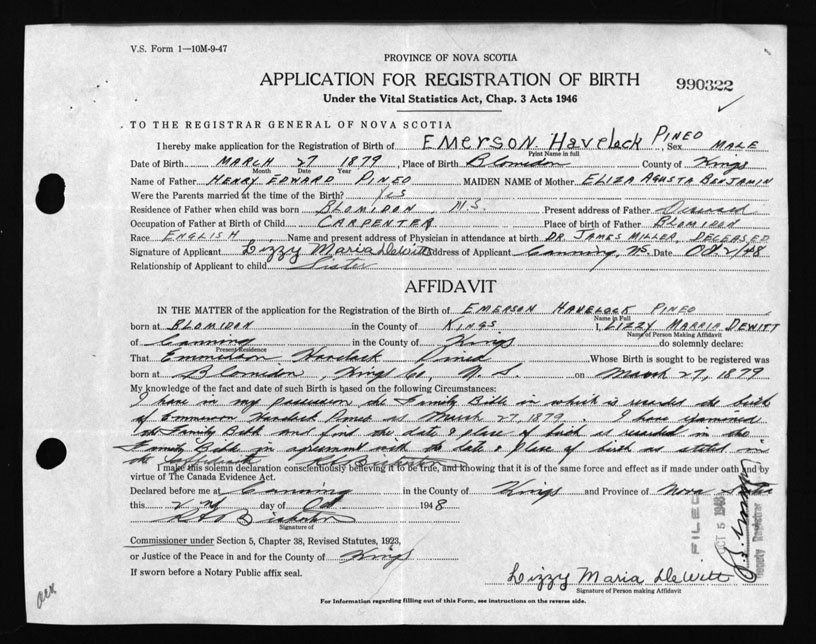 V.S. Form 1—10M-9-47
PROVINCE OF NOVA SCOTIA
APPLICATION FOR REGISTRATION OF BIRTH
990322
Under the Vital Statistics Act, Chap. 3 Acts 1946
TO THE REGISTRAR GENERAL OF NOVA SCOTIA
I hereby make application for the Registration of Birth of EMERSON Havelock PINEO Sex MALE
Print Name in full
Date of Birth MARCH 27 1879, Place of Birth Blomidon County of Kings
Month Date Year
Name of Father HENRY EDWARD PINEO MAIDEN NAME of Mother ELIZA AGUSTA BENJAMIN
Were the Parents married at the time of the Birth? Yes
Residence of Father when child was born BLOMIDON N.S. Present address of Father Deceased
Occupation of Father at Birth of Child CARPENTER Place of birth of Father BLOMIDON
Race ENGLISH, Name and present address of Physician in attendance at birth DR. JAMES MILLER, DECEASED
Signature of Applicant Lizzy Maria DeWitt Address of Applicant Canning, N.S. Date Oct 2/48
Relationship of Applicant to child Sister
AFFIDAVIT
IN THE MATTER of the application for the Registration of the Birth of EMERSON HAVELOCK PINEO
Name in Full
born at BLOMIDON in the County of KINGS I, LIZZY MARRIA DEWITT
Name of Person Making Affidavit
of Canning in the County of Kings do solemnly declare:
Present Residence
That Emmerson Havelock Pineo Whose Birth is sought to be registered was
born at Blomidon, Kings Co, N. S. on March 27, 1879
My knowledge of the fact and date of such Birth is based on the following Circumstances:
I have in my possession the Family Bible in which is recorded the birth
of Emmerson Havelock Pineo as March 27 1879. I have examined
the Family Bible and find the date & place of birth as recorded in the
Family Bible in agreement with the date & place of birth as stated in
the Affidavit
I make this solemn declaration conscientiously believing it to be true, and knowing that it is of the same force and effect as if made under oath and by
virtue of The Canada Evidence Act.
Declared before me at Canning in the County of Kings and Province of Nova Scotia
this 2nd day of Oct 1948
Signature of
FILED
OCT 5 1948
Deputy Registrar
Commissioner under Section 5, Chapter 38, Revised Statutes, 1923,
or Justice of the Peace in and for the County of Kings
If sworn before a Notary Public affix seal.
Lizzy Maria DeWitt
Signature of Person making Affidavit
For Information regarding filling out of this Form, see instructions on the reverse side.